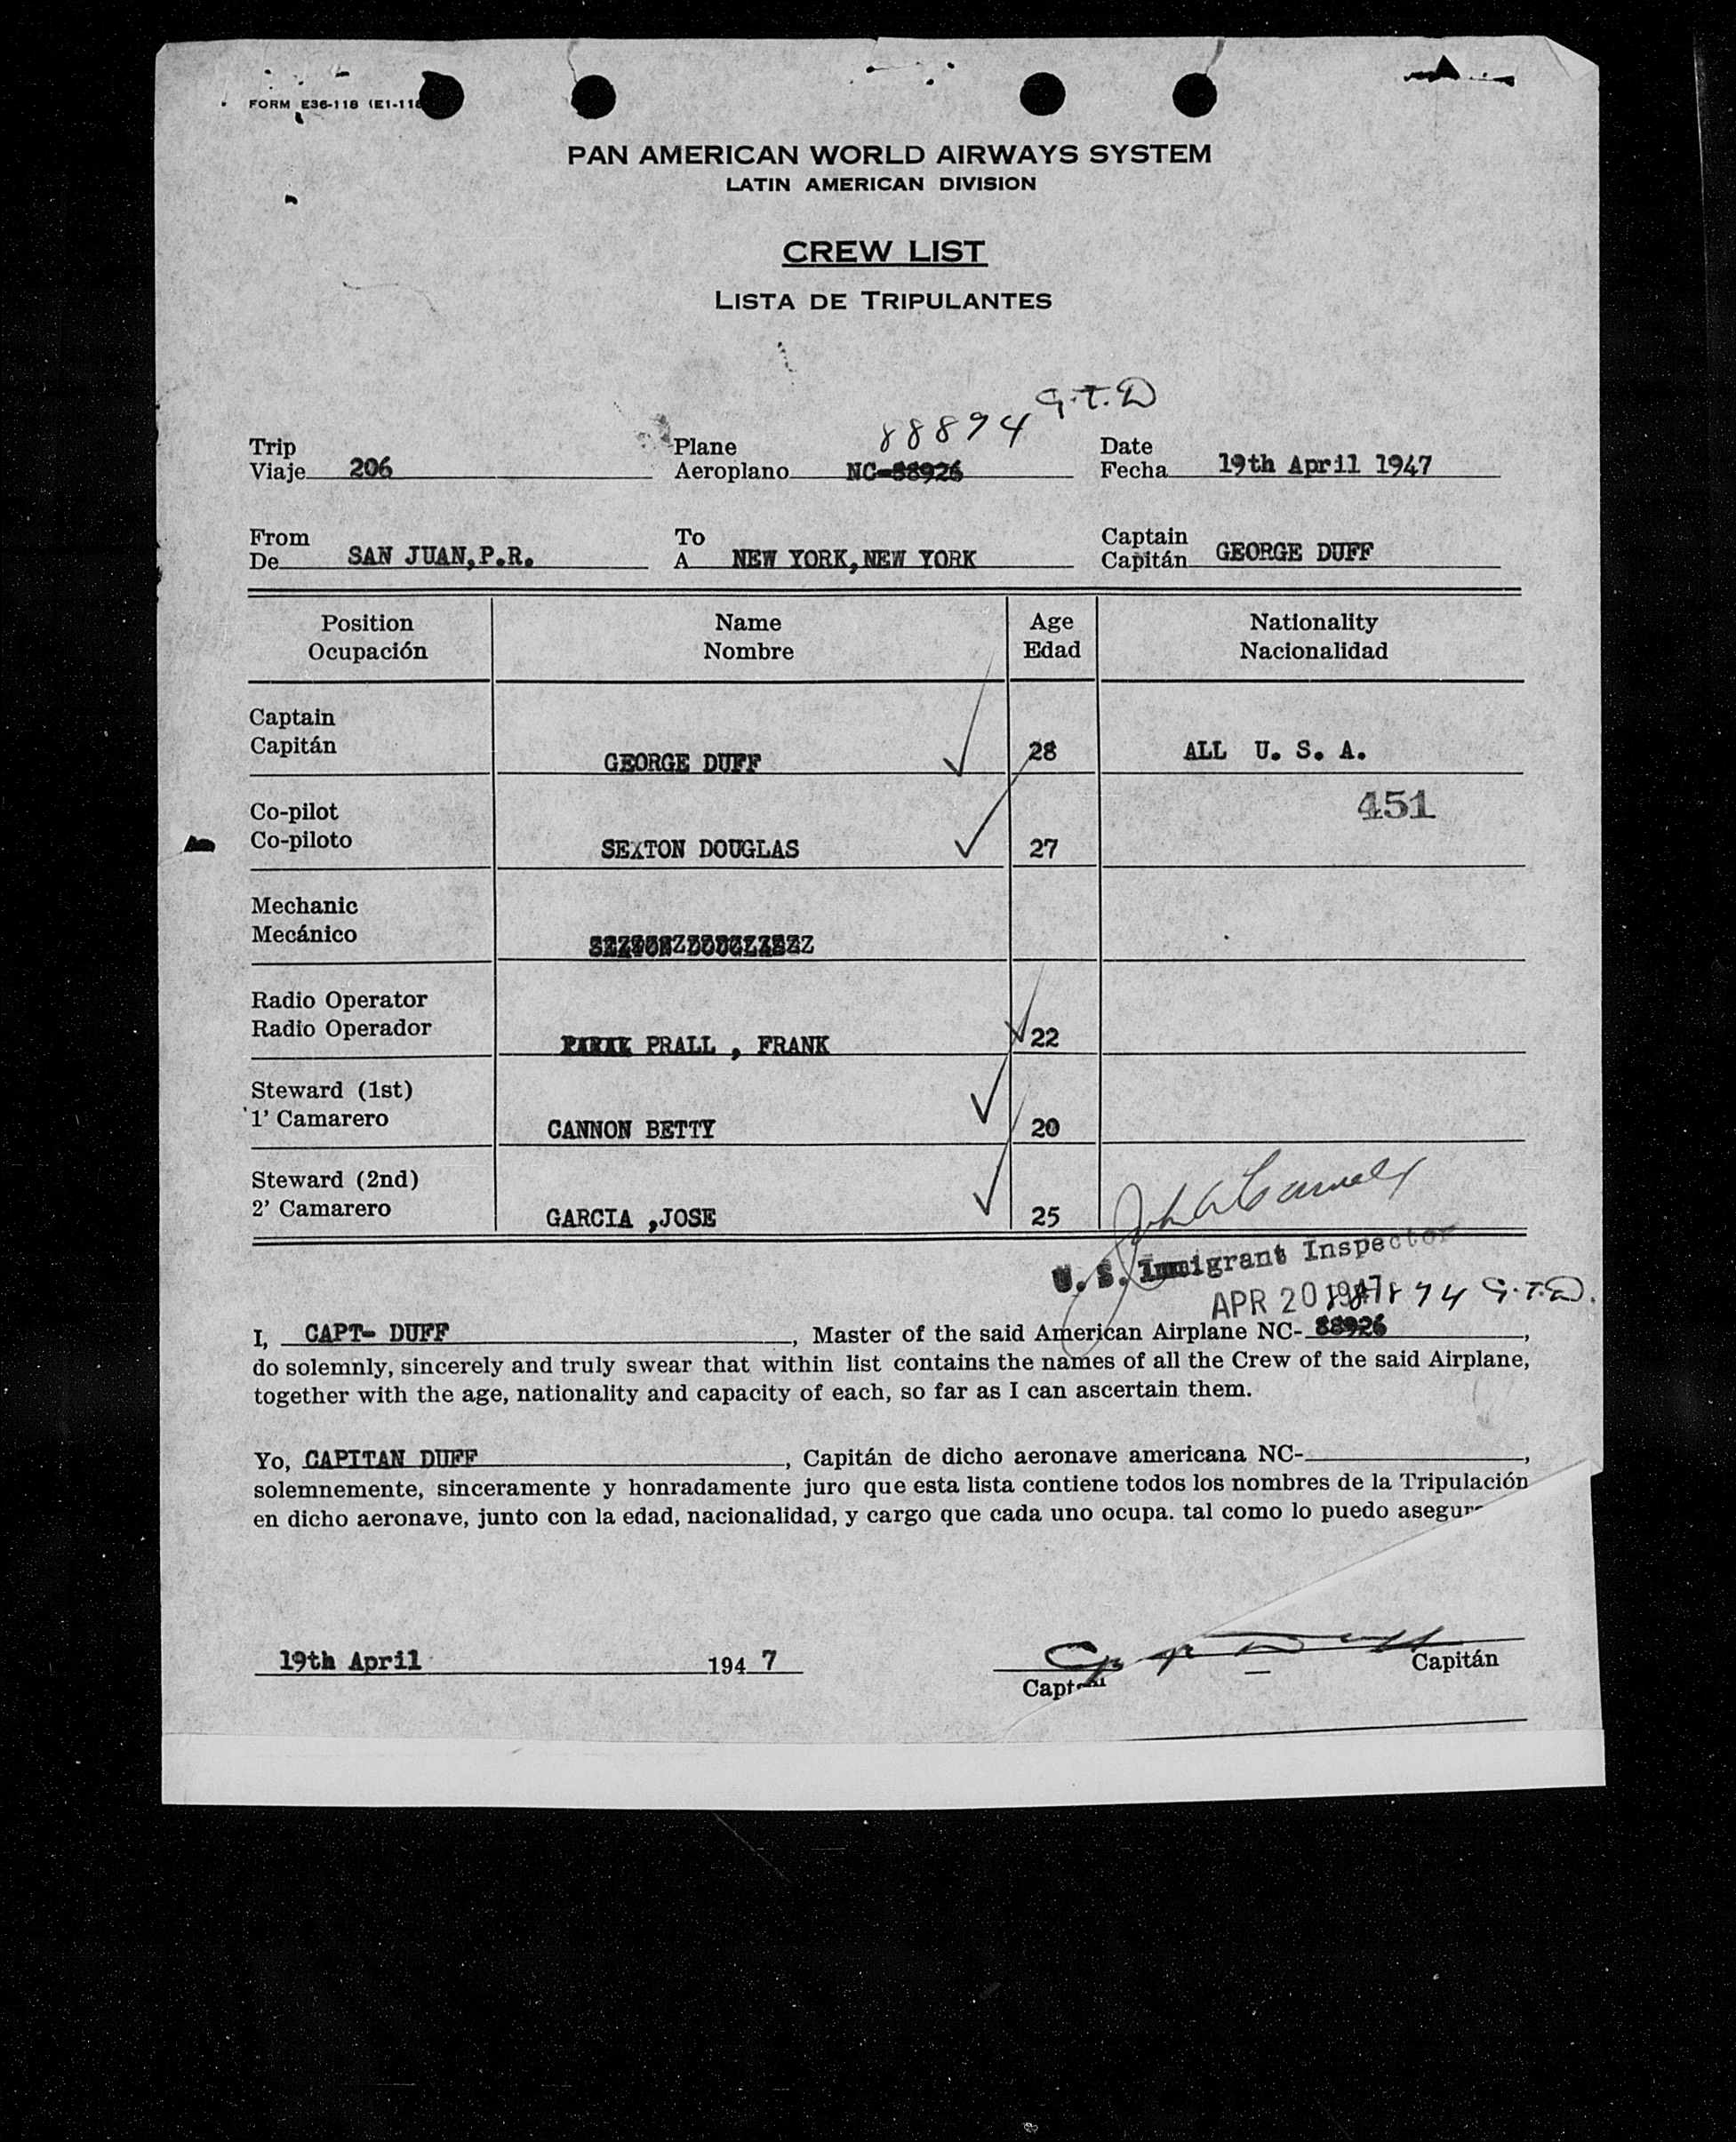 FORM E36-118 (E1-118
PAN AMERICAN WORLD AIRWAYS SYSTEM
LATIN AMERICAN DIVISION
CREW LIST
LISTA DE TRIPULANTES
88894 G.T.D
Trip Plane Date
Viaje 206 Aeroplano NC-88926 Fecha 19th April 1947
From To Captain
De SAN JUAN,P.R. A NEW YORK,NEW YORK Capitán GEORGE DUFF
Position Name Age Nationality
Ocupación Nombre Edad Nacionalidad
Captain
Capitán GEORGE DUFF 28 ALL U. S. A.
451
Co-pilot
Co-piloto SEXTON DOUGLAS 27
Mechanic
Mecánico
Radio Operator
Radio Operador PRALL , FRANK 22
Steward (1st)
1' Camarero CANNON BETTY 20
Steward (2nd)
2' Camarero GARCIA ,JOSE 25
John
U. S. Immigrant Inspector
APR 20 1947 94 G.T.D.
I, CAPT- DUFF, Master of the said American Airplane NC- 88926,
do solemnly, sincerely and truly swear that within list contains the names of all the Crew of the said Airplane,
together with the age, nationality and capacity of each, so far as I can ascertain them.
Yo, CAPITAN DUFF, Capitán de dicho aeronave americana NC-,
solemnemente, sinceramente y honradamente juro que esta lista contiene todos los nombres de la Tripulación
en dicho aeronave, junto con la edad, nacionalidad, y cargo que cada uno ocupa. tal como lo puedo asegur
19th April 194 7 Duff
Capitán
Capt